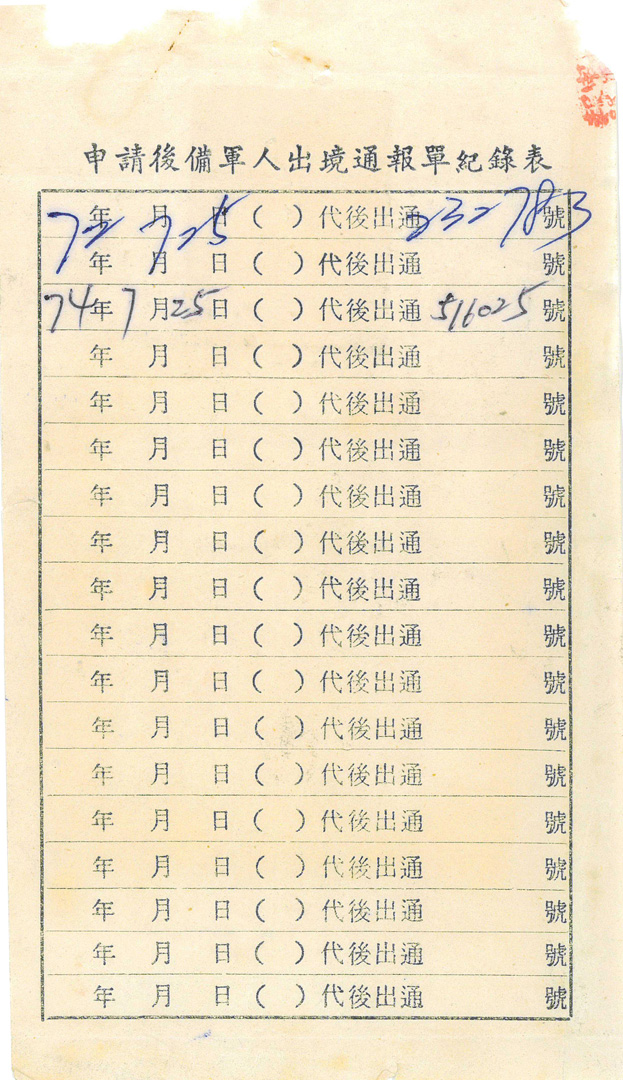 申請後備軍人出境通報單紀錄表
72年7月25日( )代後出通232783號
年 月 日( )代後出通 號
74年7月25日( )代後出通516025號
年 月 日( )代後出通 號
年 月 日( )代後出通 號
年 月 日( )代後出通 號
年 月 日( )代後出通 號
年 月 日( )代後出通 號
年 月 日( )代後出通 號
年 月 日( )代後出通 號
年 月 日( )代後出通 號
年 月 日( )代後出通 號
年 月 日( )代後出通 號
年 月 日( )代後出通 號
年 月 日( )代後出通 號
年 月 日( )代後出通 號
年 月 日( )代後出通 號
年 月 日( )代後出通 號